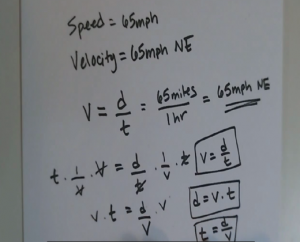 Speed = 65mph
Velocity = 65mph NE
V = d/t = 65miles/1hr = 65mph NE
t · 1/v · V = d/t · 1/v · t
V = d/t
v · t = d/v · v
d = v · t
t = d/v